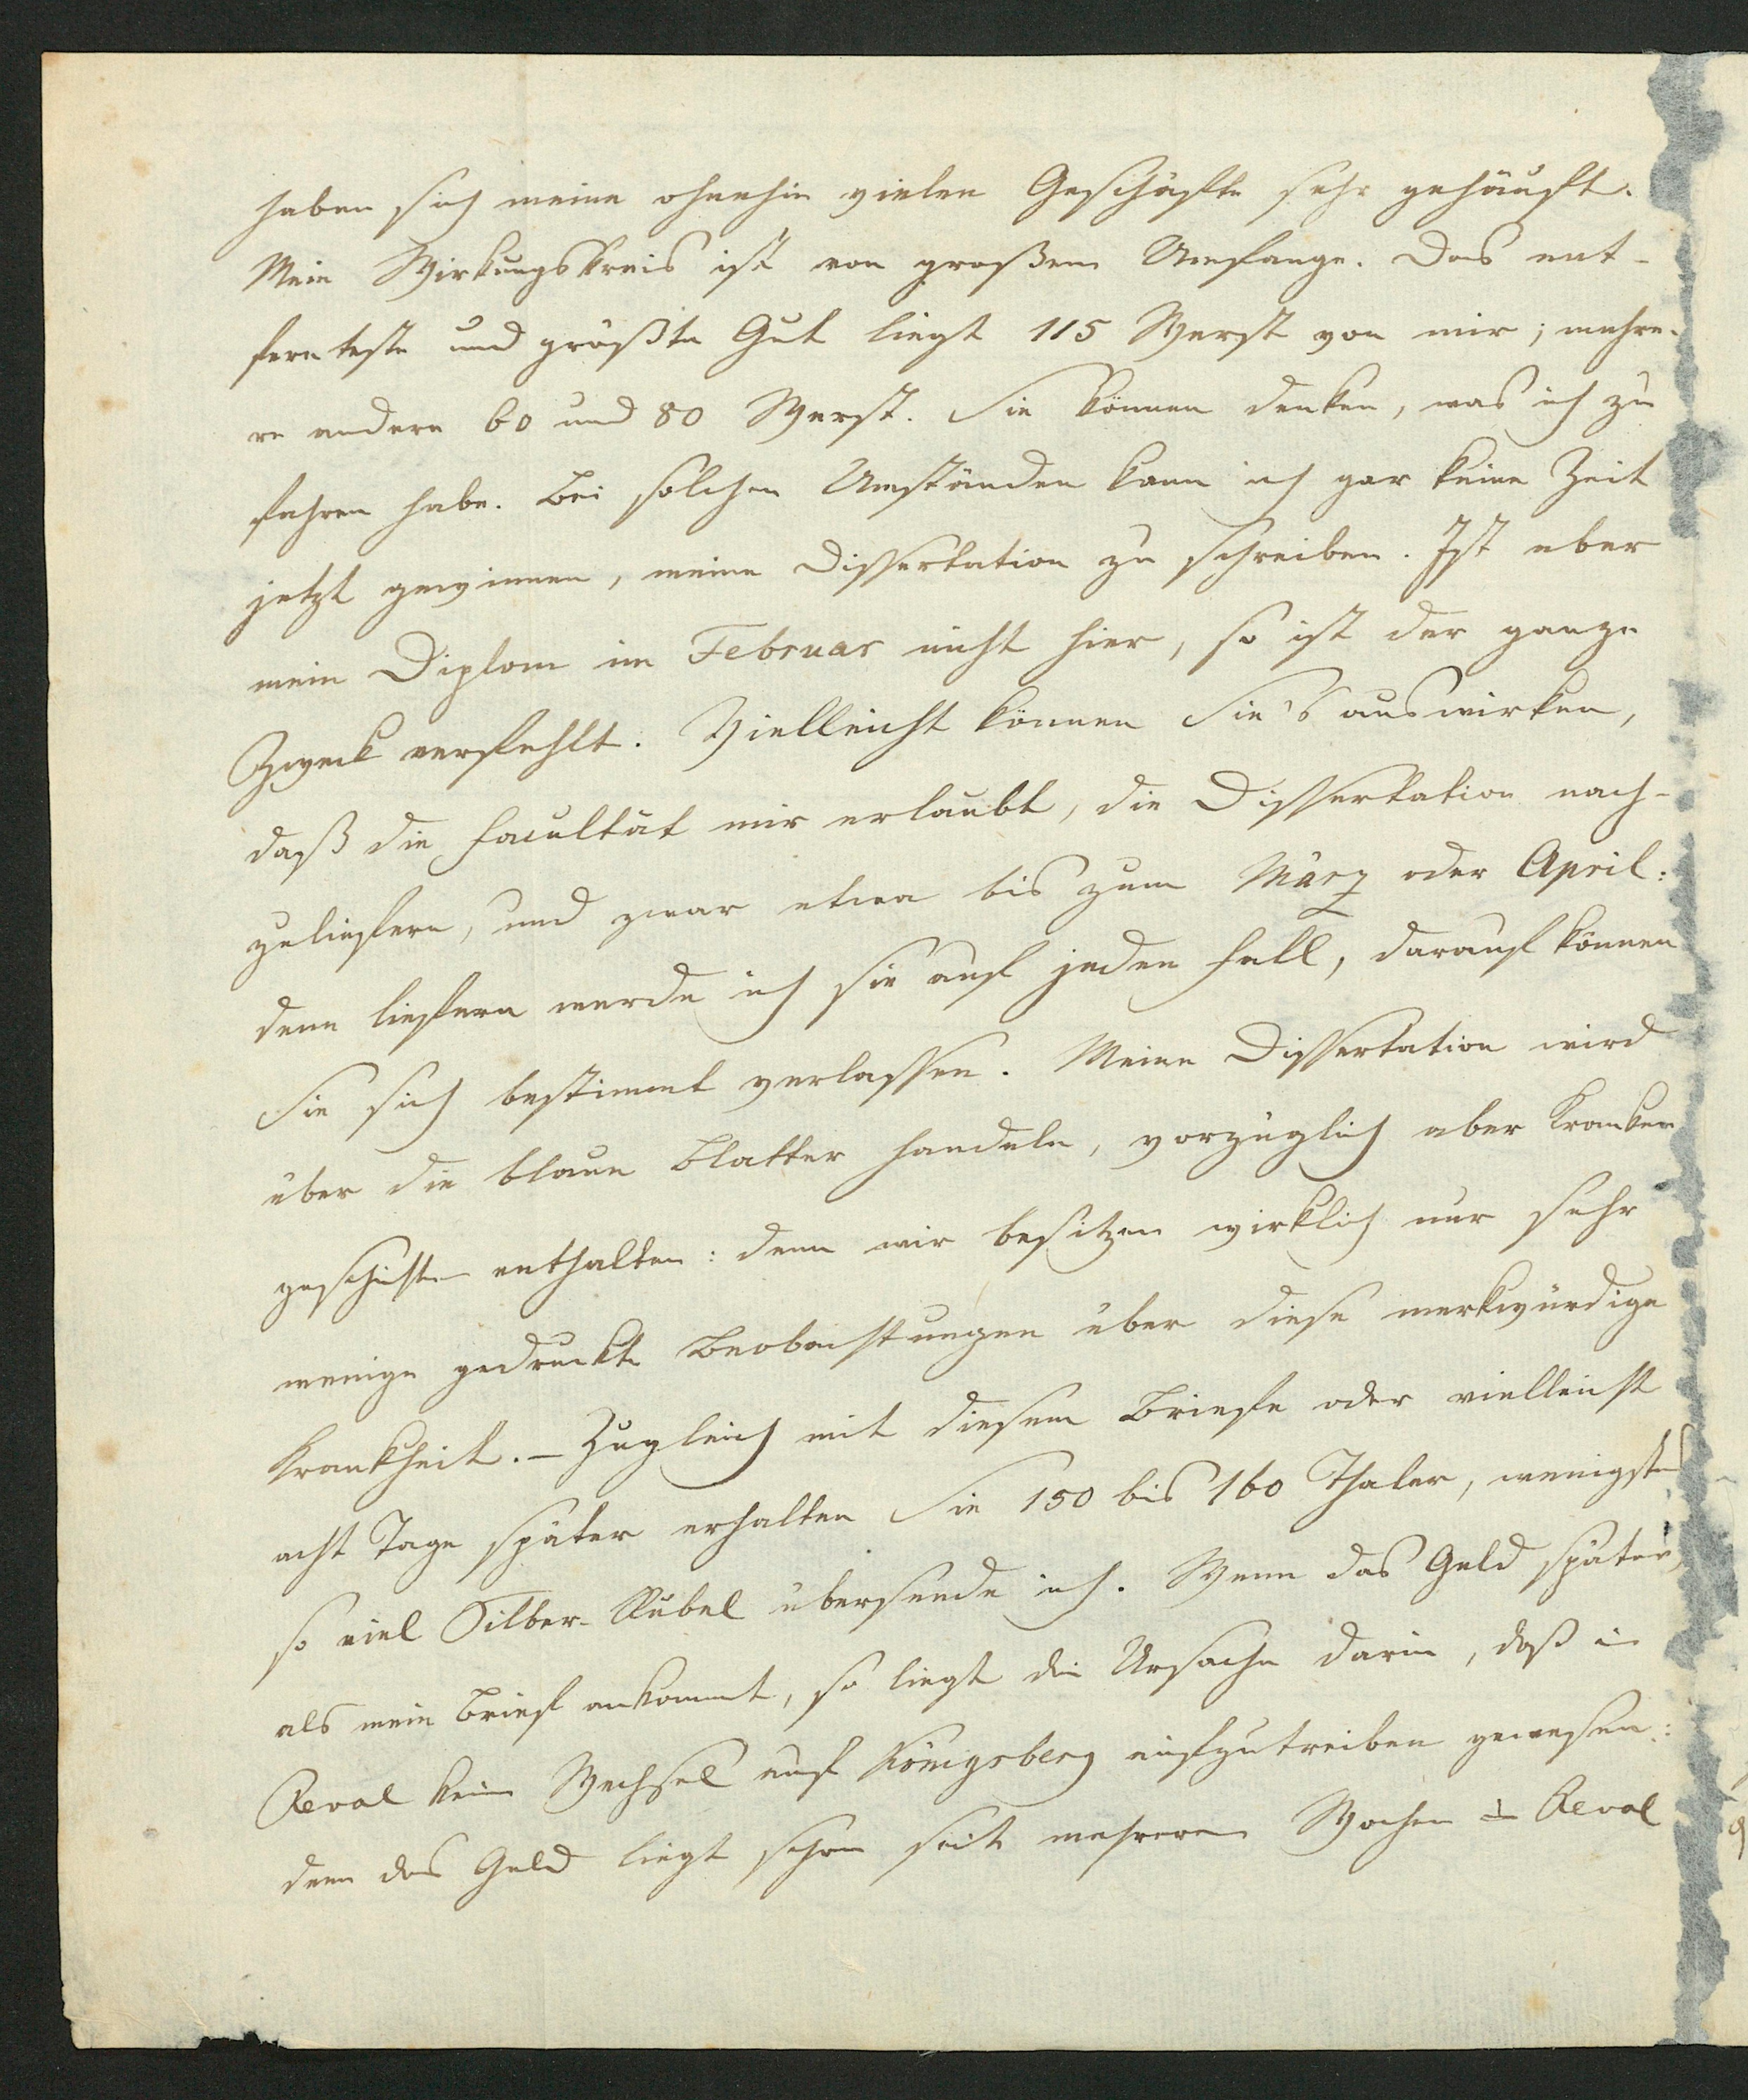 haben sich meine ohnehin vielen Geschäfte sehr gehäuft.
Mein Wirkungskreis ist von großem Umfange. Das ent-
fernteste und größte Gut liegt 115 Werst von mir; mehre-
re andere 60 und 80 Werst. Sie können denken, was ich zu
fahren habe. Bei solchen Umständen kann ich gar keine Zeit
jetzt gewinnen, meine Dissertation zu schreiben. Ist aber
mein Diplom im Februar nicht hier, so ist der ganze
Zweck verfehlt. Vielleicht können Sie's auswirken,
daß die Facultät mir erlaubt, die Dissertation nach-
zuliefern, und zwar etwa bis zum März oder April:
denn liefern werde ich sie auf jeden Fall, darauf können
Sie sich bestimmt verlassen. Meine Dissertation wird
über die blaue Blatter handeln, vorzüglich aber Kranken
geschichten enthalten: denn wir besitzen wirklich nur sehr
wenige gedruckte Beobachtungen über diese merkwürdige
Krankheit. – Zugleich mit diesem Briefe oder vielleicht
acht Tage später erhalten Sie 150 bis 160 Thaler, wenigstens
so viel Silber-Rubel übersende ich. Wenn das Geld später,
als mein Brief ankommt, so liegt die Ursache darin, daß in
Reval kein Wechsel auf Königsberg aufzutreiben gewesen:
denn das Geld liegt schon seit mehreren Wochen in Reval